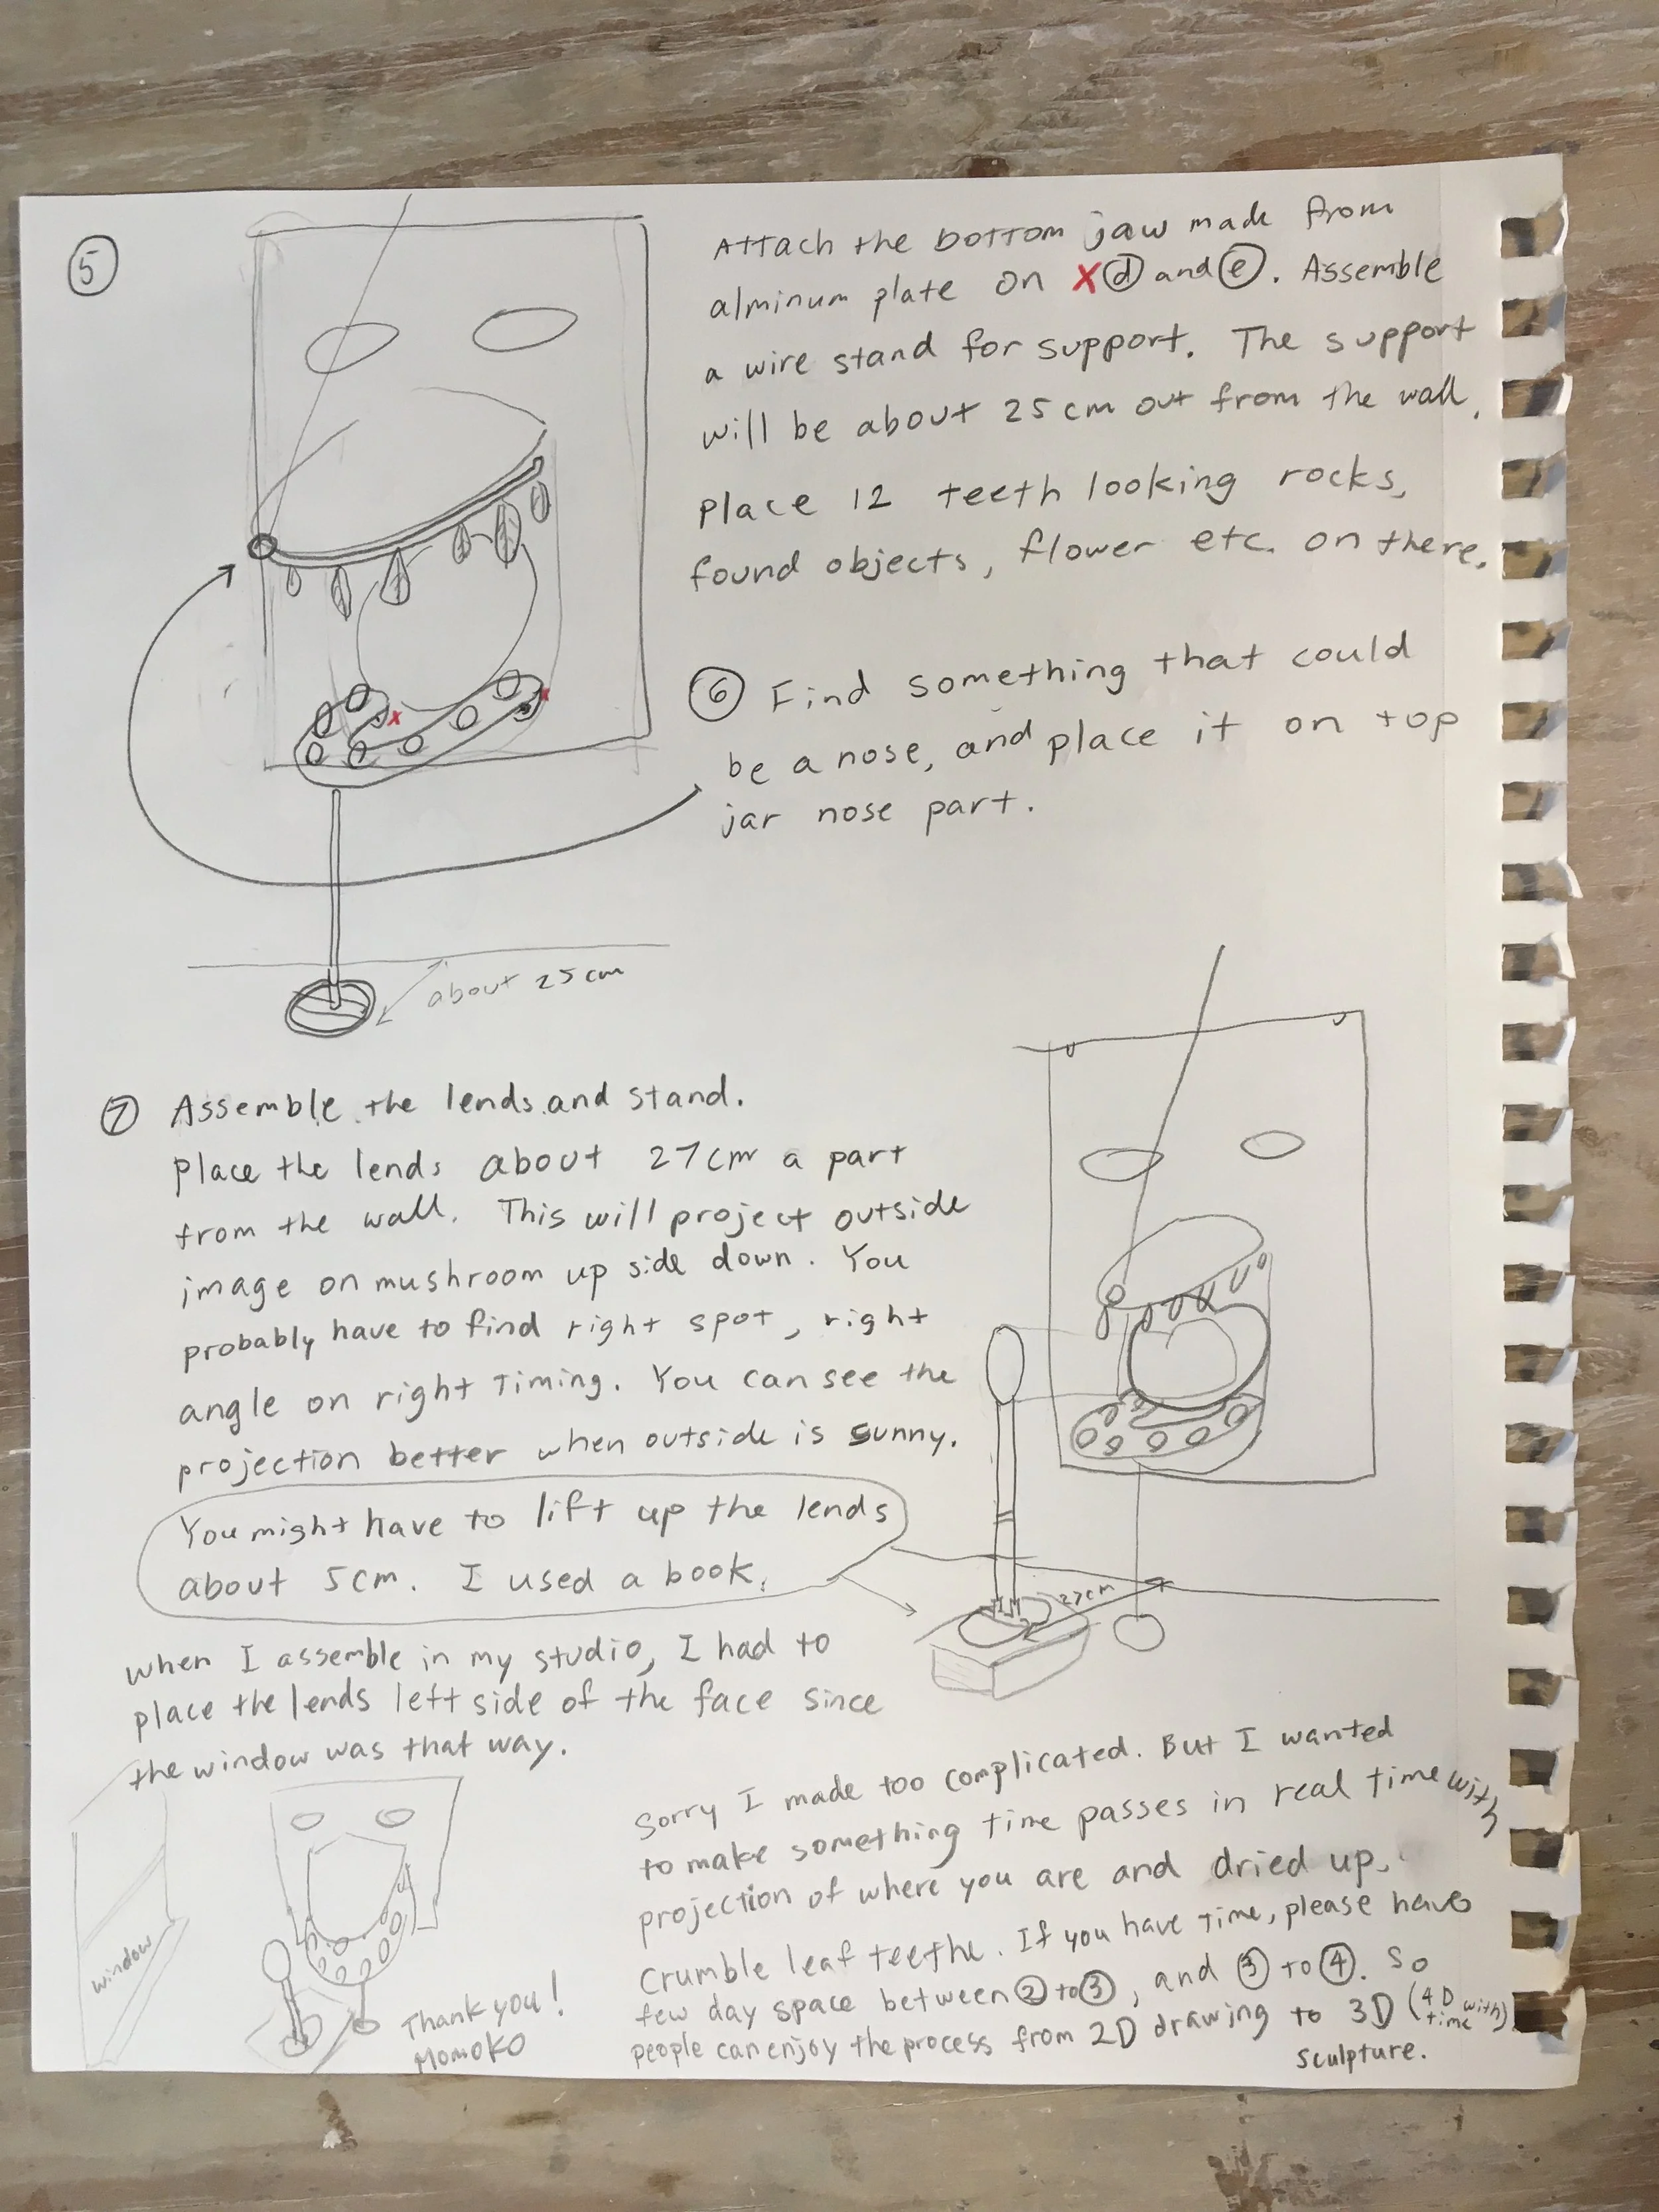 ⑤
Attach the bottom jaw made from
alminum plate on X ⓓ and ⓔ. Assemble
a wire stand for support. The support
will be about 25cm out from the wall.
Place 12 teeth looking rocks,
found objects, flower etc. on there.
X
X
⑥ Find something that could
be a nose, and place it on top
jar nose part.
about 25cm
⑦ Assemble the lends and stand.
Place the lends about 27cm a part
from the wall. This will project outside
image on mushroom up side down. You
probably have to find right spot, right
angle on right timing. You can see the
projection better when outside is sunny.
You might have to lift up the lends
about 5cm. I used a book.
27cm
When I assemble in my studio, I had to
place the lends left side of the face since
the window was that way.
window
Thank you!
Momoko
Sorry I made too complicated. But I wanted
to make something time passes in real time with
projection of where you are and dried up,
crumble leaf teethe. If you have time, please have
few day space between ② to ③, and ③ to ④. So
people can enjoy the process from 2D drawing to 3D (4D with time)
sculpture.